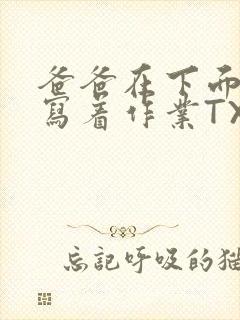 爸爸在下而
寫着作業TX
忘記呼吸的猫